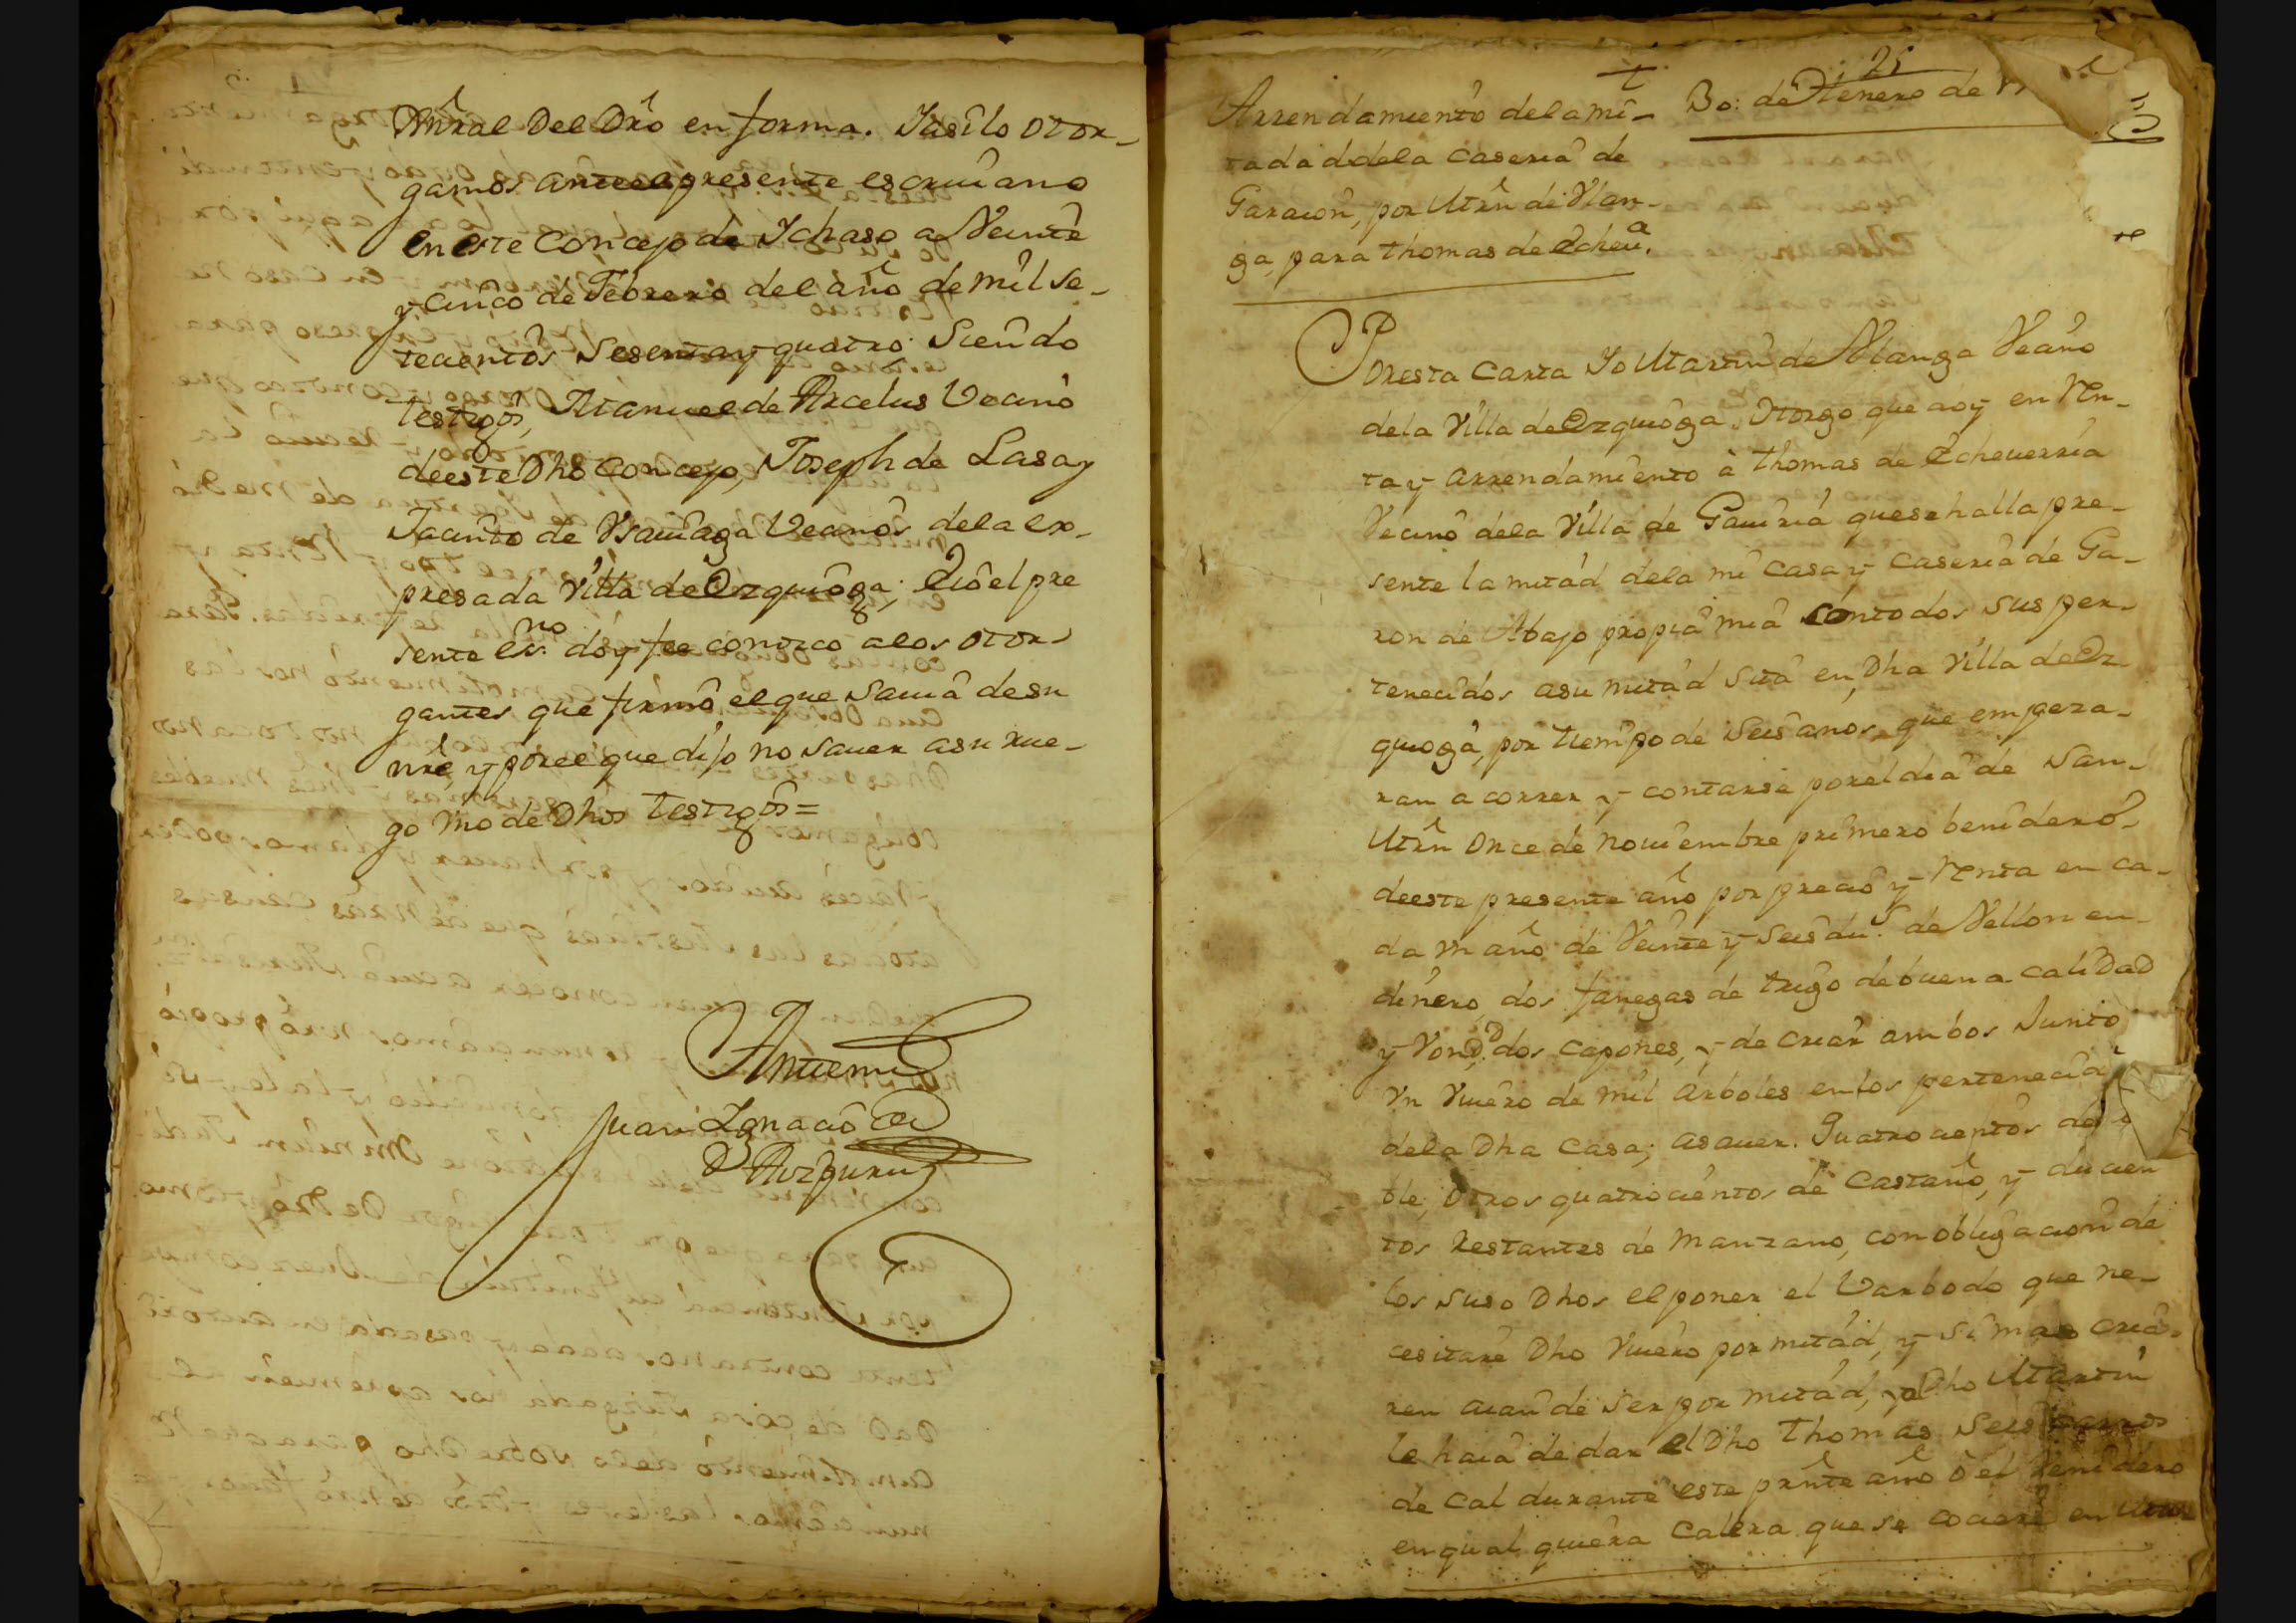 Gnral Del Dro en forma. Iasi lo otor-
gamos ante el presente escriuano
en este Concejo de Ichaso a Veinte
y cinco de Febrero del año de mil se-
tecientos sesenta y quatro. Siendo
testigos, Manuel de Arcelus Vecino
de este Dho Concejo, Joseph de Lasa y
Jacinto de Vsauiaga Vecinos de la ex-
presada Villa de Ezquioga; E io el pre
sente esno doy fee conozco a los otor-
gantes que firmó el que sauia de su
nre, y por el que dijo no sauer a su rue-
go vno de Dhos testigos =
Antemi
Juan Ignacio de
Aizpuru
Arrendamiento de la mi-
tadad de la caseria de
Garaion, por Mrn de Vlan-
ga, para Thomas de Echeua.
21
30: de Henero de
Por esta Carta Io Martin de Vlanga Vecino
de la Villa de Ezquioga. Otorgo que doy en Ren-
ta y Arrendamiento à Thomas de Echeuerria
Vecino de la Villa de Gauiria que se halla pre-
sente la mitad de la mi casa y caseria de Ga-
ron de Abajo propia mia con todos sus per-
tenecidos a su mitad sita en Dha Villa de Ez-
quioga, por tiempo de seis años, que empeza-
ran a correr y contarse por el dia de San
Mrn Once de Nouiembre primero benidero
de este presente año por precio y Renta en ca-
da vn año de Veinte y seis dus de Vellon en
dinero, dos fanegas de trigo de buena calidad
y Vond, dos capones, y de criar ambos Junto
vn viuero de mil Arboles en los pertenecid
de la Dha Casa; asauer. Quatrocientos de
ble, Otros quatrocientos de Castaño, y ducien
tos Restantes de Manzano, con obligacion de
los suso Dhos el poner el Varbado que ne-
cesitare Dho Viuero por mitad, y si mas cria-
ren aian de ser por mitad, y el Dho Martin
le haia de dar al Dho Thomas Seis carros
de Cal durante este prnte año ô el Venidero
en qual quiera Calera que se cociere en